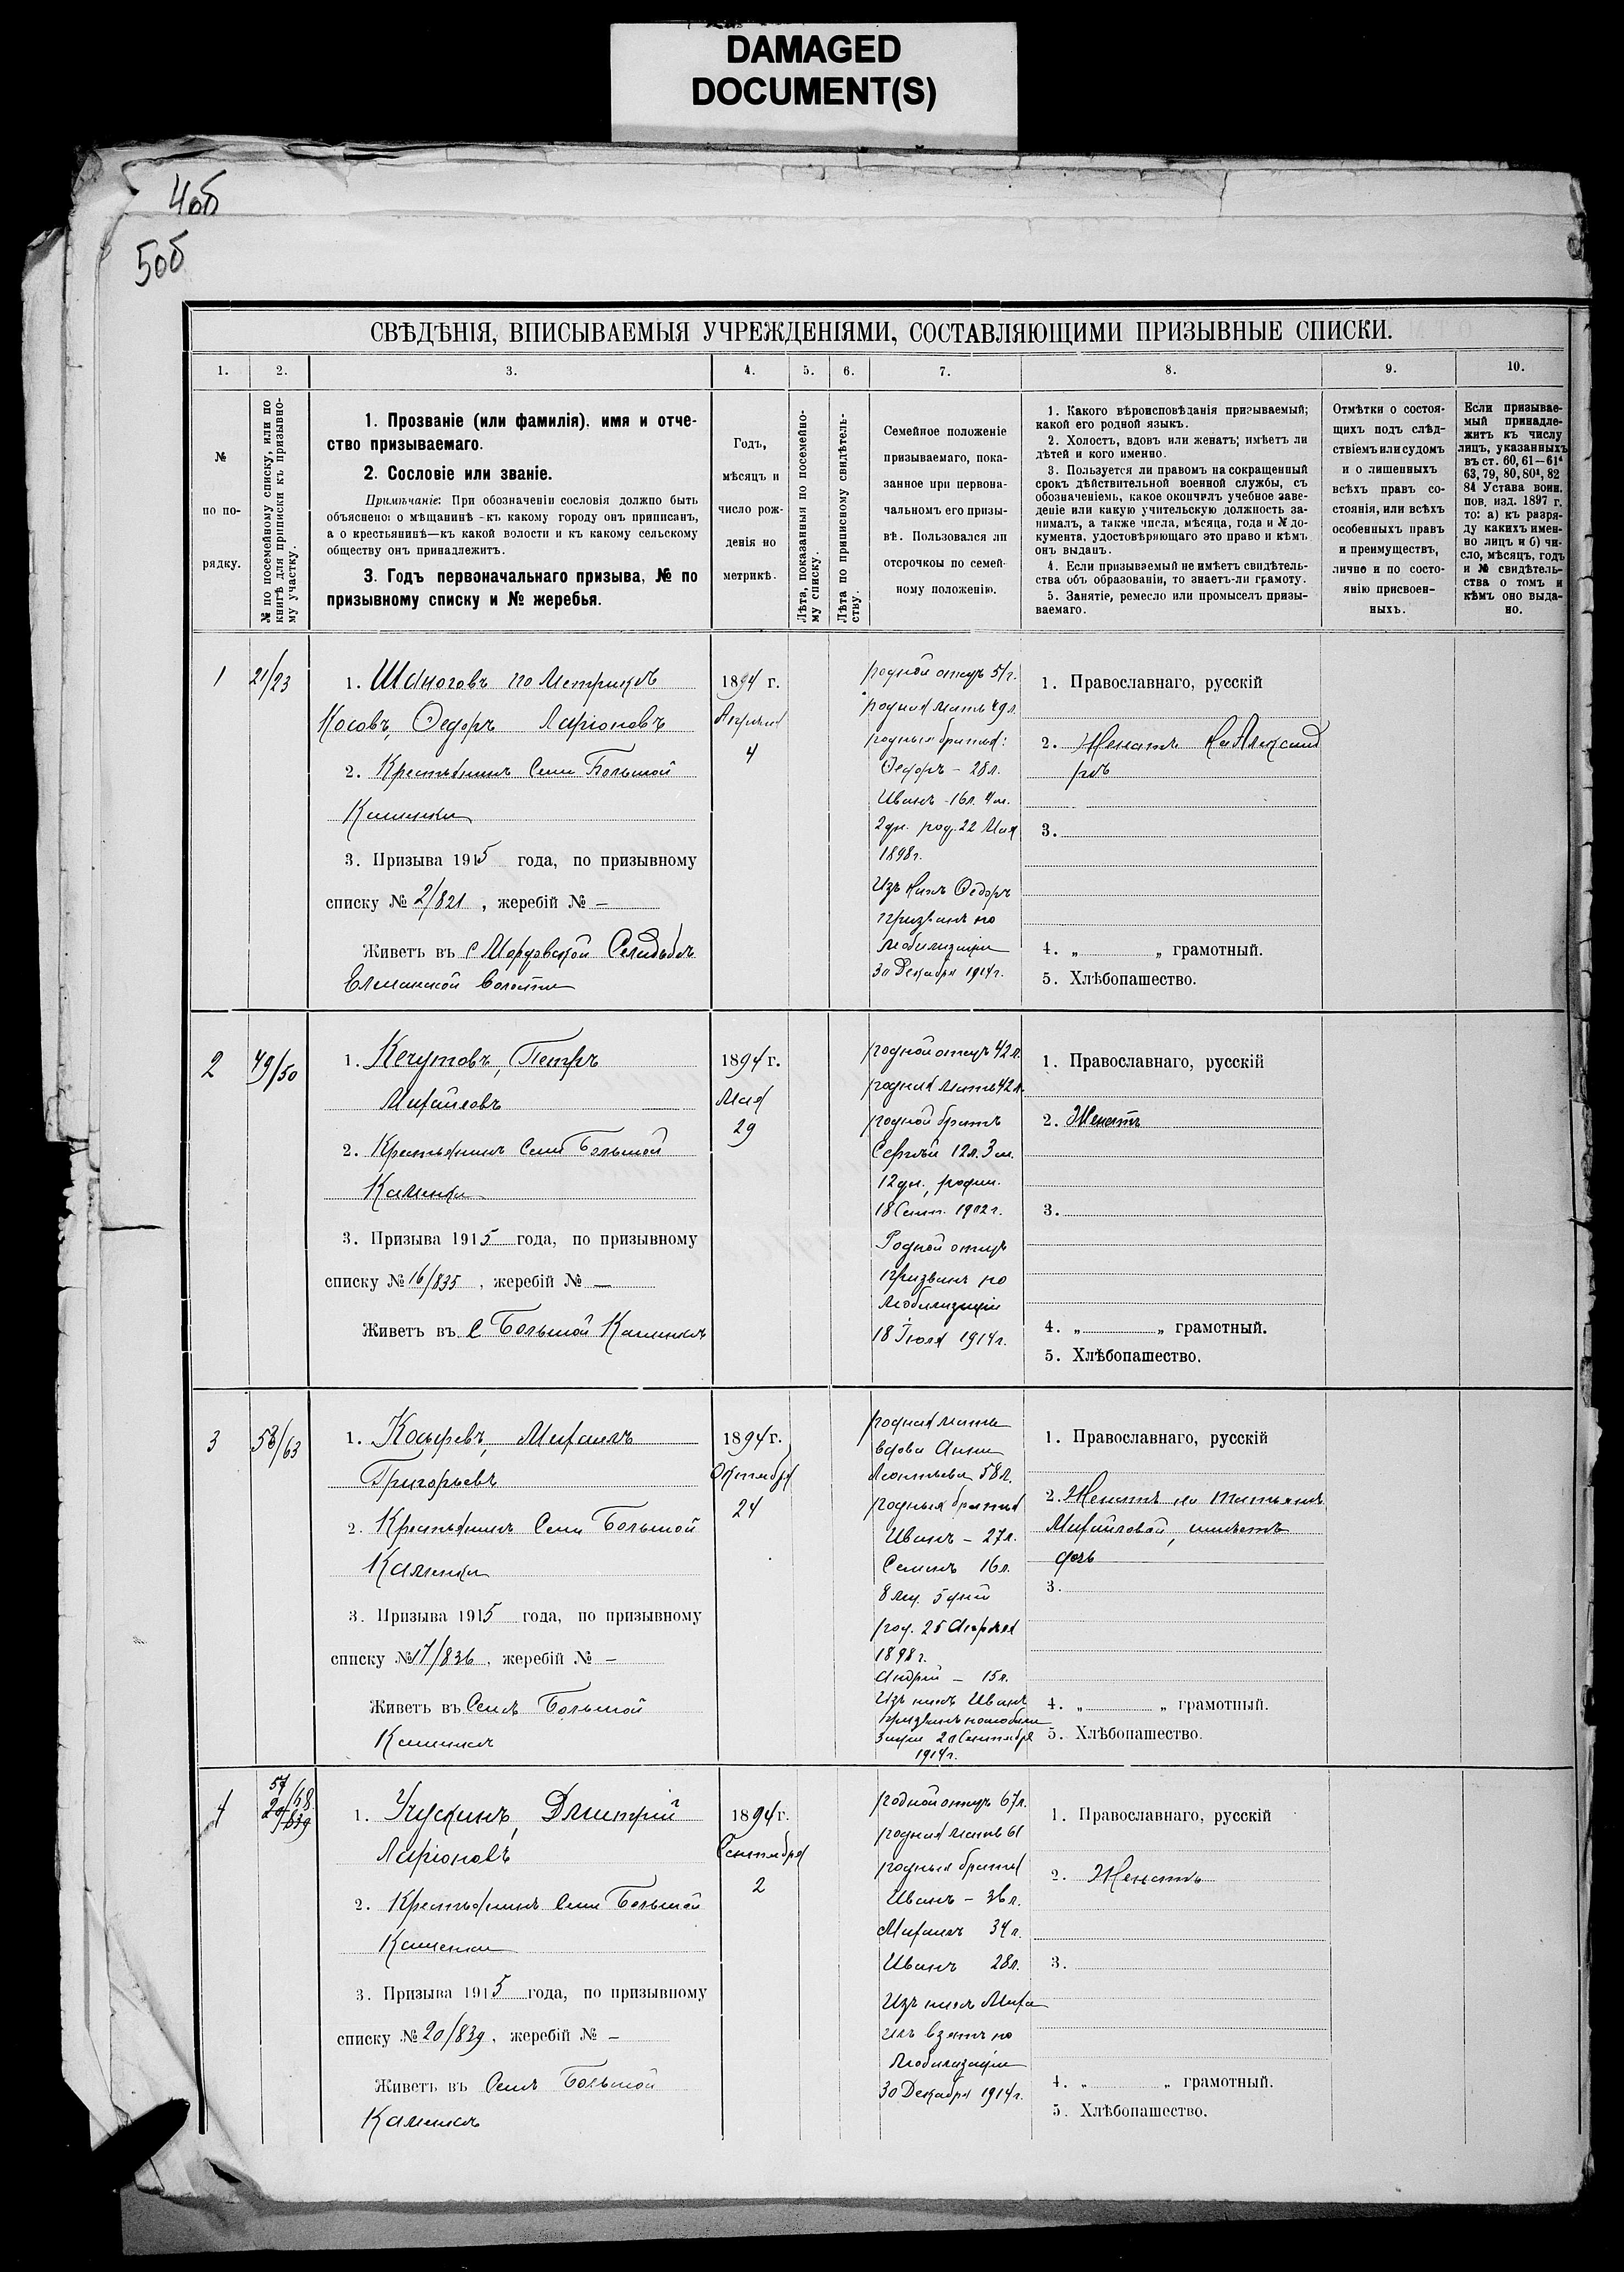 DAMAGED
DOCUMENT(S)
4об
5об
СВѢДѢНІЯ, ВПИСЫВАЕМЫЯ УЧРЕЖДЕНІЯМИ, СОСТАВЛЯЮЩИМИ ПРИЗЫВНЫЕ СПИСКИ.
1. 2. 3. 4. 5. 6. 7. 8. 9. 10.
№
по по-
рядку.
№ по посемейному списку, или по
книгѣ для приписки къ призывно-
му участку.
1. Прозваніе (или фамилія). имя и отче-
ство призываемаго.
2. Сословіе или званіе.
Примѣчаніе: При обозначеніи сословія должно быть
объяснено: о мѣщанинѣ -къ какому городу онъ приписанъ,
а о крестьянинѣ—къ какой волости и къ какому сельскому
обществу онъ принадлежитъ.
3. Годъ первоначальнаго призыва, № по
призывному списку и № жеребья.
Годъ,
мѣсяцъ и
число рож-
денія по
метрикѣ.
Лѣта, показанныя по посемейно-
му списку.
Лѣта по приписному свидѣтель-
ству.
Семейное положеніе
призываемаго, пока-
занное при первона-
чальномъ его призы-
вѣ. Пользовался ли
отсрочкою по семей-
ному положенію.
1. Какого вѣроисповѣданія призываемый;
какой его родной языкъ.
2. Холостъ, вдовъ или женатъ; имѣетъ ли
дѣтей и кого именно.
3. Пользуется ли правомъ на сокращенный
срокъ дѣйствительной военной службы, съ
обозначеніемъ, какое окончилъ учебное заве-
деніе или какую учительскую должность за-
нималъ, а также числа, мѣсяца, года и № до-
кумента, удостовѣряющаго это право и кѣмъ
онъ выданъ.
4. Если призываемый не имѣетъ свидѣтель-
ства объ образованіи, то знаетъ-ли грамоту.
5. Занятіе, ремесло или промыселъ призы-
ваемаго.
Отмѣтки о состоя-
щихъ подъ слѣд-
ствіемъ или судомъ
и о лишенныхъ
всѣхъ правъ со-
стоянія, или всѣхъ
особенныхъ правъ
и преимуществъ,
лично и по состо-
янію присвоен-
ныхъ.
Если призывае-
мый принадле-
житъ къ числу
лицъ, указанныхъ
въ ст. 60, 61—61⁴
63, 79, 80, 80¹, 82
84 Устава воин.
пов. изд. 1897 г.
то: а) къ разря-
ду какихъ имен-
но лицъ и б) чи-
сло, мѣсяцъ, годъ
и № свидѣтель-
ства о томъ и
кѣмъ оно выда-
но.
1
21/23
1. по Метрикѣ
Косовъ, Ѳедоръ Ларіоновъ
2. Крестьянинъ Села Большой
Каменки
3. Призыва 1915 года, по призывному
списку № 2/821, жеребій № —
Живетъ въ с Мордовской Селидьбѣ
Елшанской волости
1894 г.
Апрѣля
4
родной отецъ 51 г.
родная мать 49 л.
родные братья:
Ѳедоръ - 28 л.
Иванъ - 16 л. 4 м.
2 дн. род. 22 Мая
1898 г.
Изъ нихъ Ѳедоръ
призванъ по
мобилизаціи
30 Декабря 1914 г.
1. Православнаго, русскій
2. Женатъ на Александ
рѣ
3.
4. „ „ грамотный.
5. Хлѣбопашество.
2
49/50
1. Кечутовъ, Петръ
Михайловъ
2. Крестьянинъ Села Большой
Каменки
3. Призыва 1915 года, по призывному
списку № 16/835, жеребій № —
Живетъ въ с Большой Каменкѣ
1894 г.
Мая
29
родной отецъ 42 л.
родная мать 42 л.
родной братъ
Сергѣй 12 л. 3 м.
12 дн., родил.
18 Сент. 1902 г.
Родной отецъ
призванъ по
мобилизаціи
18 Іюля 1914 г.
1. Православнаго, русскій
2. Женатъ
3.
4. „ „ грамотный.
5. Хлѣбопашество.
3
58/63
1. Михаилъ
Григорьевъ
2. Крестьянинъ Села Большой
Каменки
3. Призыва 1915 года, по призывному
списку № 17/836, жеребій № —
Живетъ въ Селѣ Большой
Каменкѣ
1894 г.
Октября
24
родная мать
вдова Анна
Леонтьева 58 л.
родные братья
Иванъ - 27 л.
Семенъ 16 л.
8 мц. 5 дней
род. 25 Апрѣля
1898 г.
Андрей - 15 л.
Изъ нихъ Иванъ
призванъ по мобили
заціи 20 Сентября
1914 г.
1. Православнаго, русскій
2. Женатъ на Татьянѣ
Михайловой, имѣетъ
дочь
3.
4. „ „ грамотный.
5. Хлѣбопашество.
4
57/68
20/839
1. Учускинъ, Дмитрій
Ларіоновъ
2. Крестьянинъ Села Большой
Каменки
3. Призыва 1915 года, по призывному
списку № 20/839, жеребій № —
Живетъ въ Селѣ Большой
Каменкѣ
1894 г.
Сентября
2
родной отецъ 67 л.
родная мать 61
родные братья
Иванъ - 36 л.
Михаилъ 34 л.
Иванъ 28 л.
Изъ нихъ Миха
илъ взятъ по
мобилизаціи
30 Декабря 1914 г.
1. Православнаго, русскій
2. Женатъ
3.
4. „ „ грамотный.
5. Хлѣбопашество.